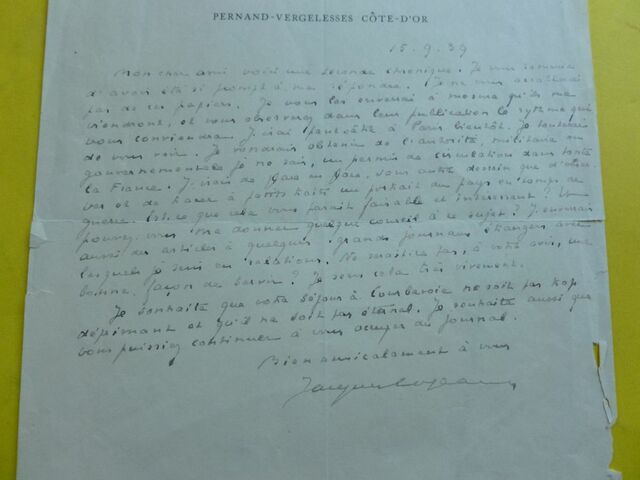 PERNAND-VERGELESSES CÔTE-D'OR
15.9.39
Mon cher ami voici une seconde chronique. Je vous remercie
d'avoir été si prompt à me répondre. Je ne vous
pas de ces papiers. Je vous les enverrai à mesure qu'ils me
viendront, et vous observerez dans leur publication le rythme qui
vous conviendra. J'irai peut-être à Paris bientôt. Je
de vous voir. Je voudrais obtenir de l'autorité, militaire ou
gouvernementale je ne sais, un permis de circulation dans toute
la France. J'irais de gare en gare, sans autre dessein que d'obser-
ver et de tracer à petits traits un portrait du pays en temps de
guerre. Est-ce que cela vous paraît faisable et intéressant ?
pouvez-vous me donner quelque conseil à ce sujet ? J'enverrais
aussi des articles à quelques grands journaux étrangers avec
lesquels je suis en relations. Ne serait-ce pas, à votre avis, une
bonne façon de servir ? Je sens cela très vivement.
Je souhaite que votre séjour à Courbevoie ne soit pas trop
déprimant et qu'il ne soit pas éternel. Je souhaite aussi que
vous puissiez continuer à vous occuper du journal.
Bien amicalement à vous
Jacques Copeau